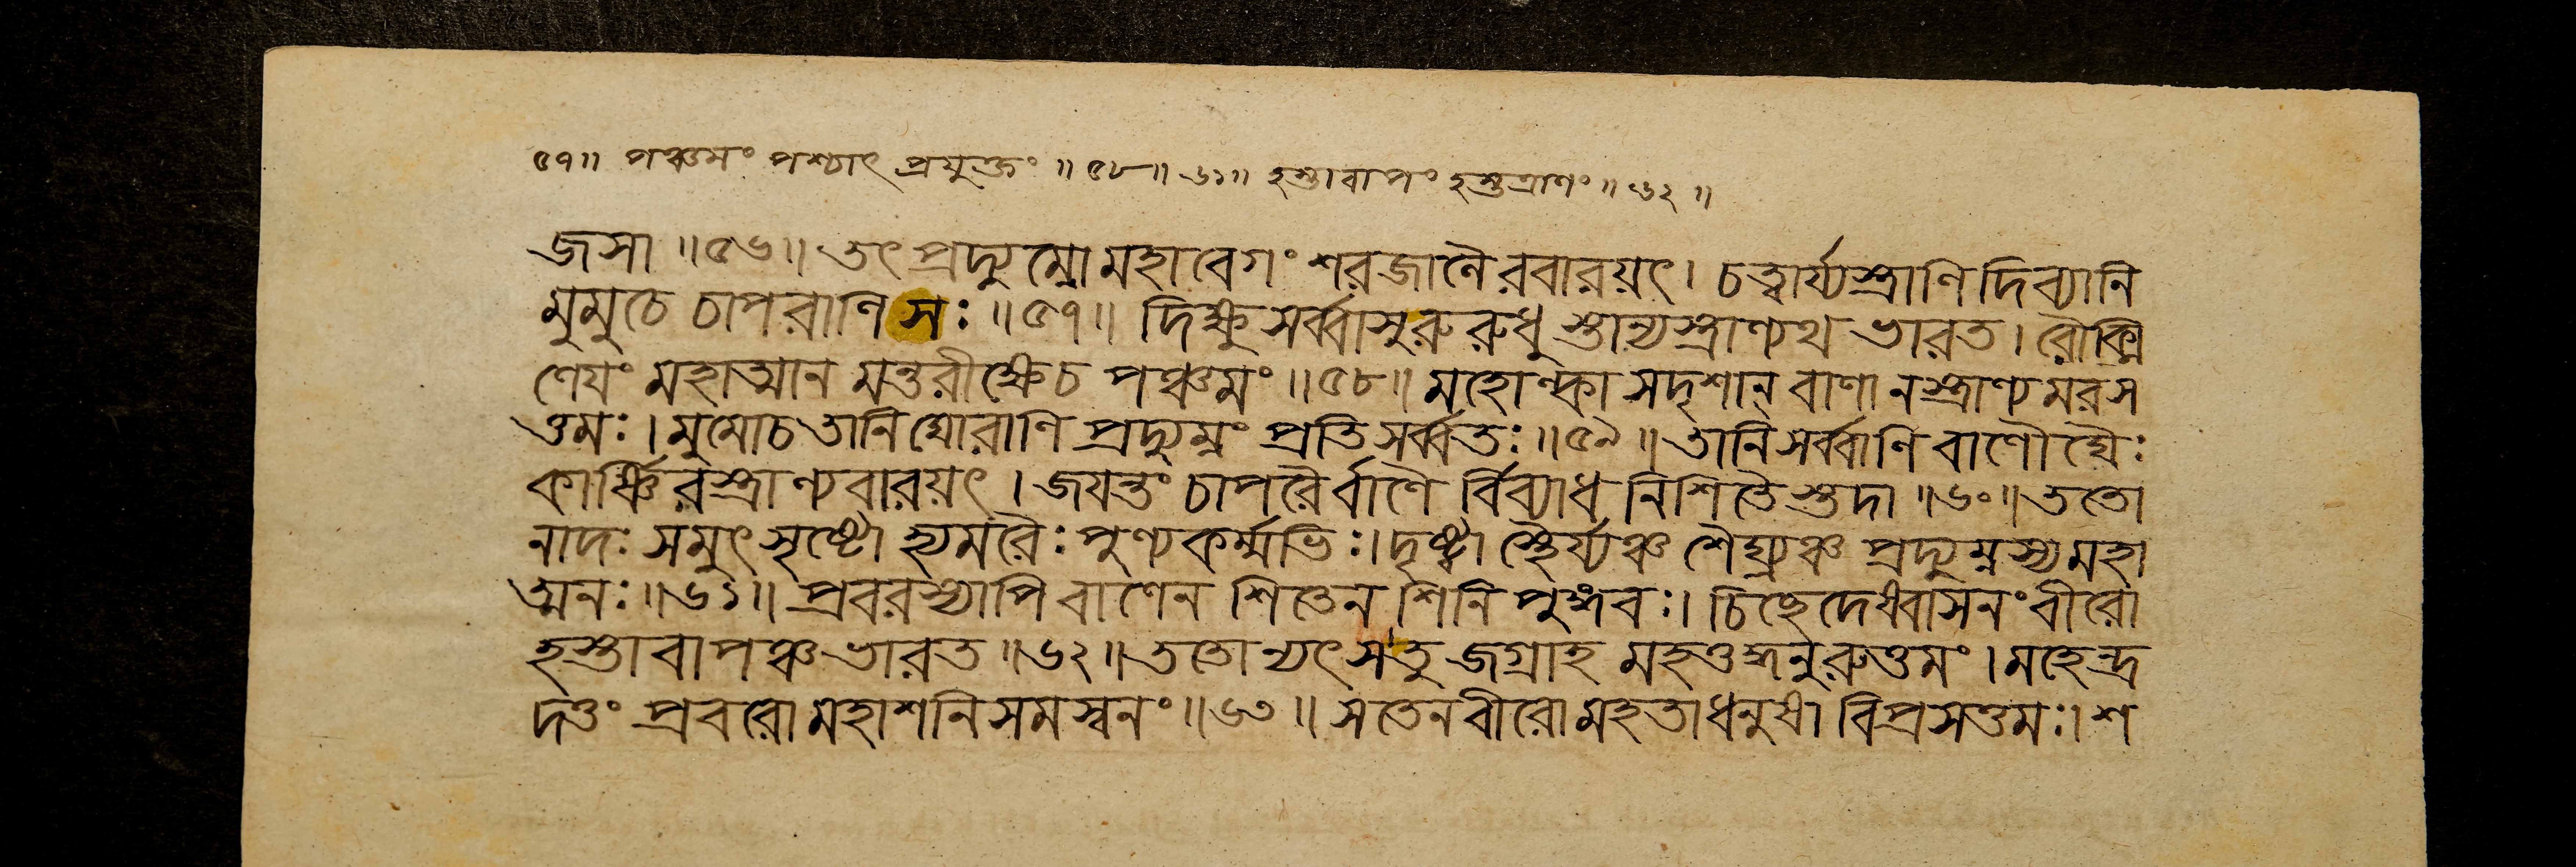 ৫৭॥ পঞ্চমং পশ্চাৎ প্রযুক্তং ॥৫৮॥৬১॥ হস্তাবাপং হস্তত্রাণং ॥৬২॥
জসা ॥৫৬॥ তৎ প্রদ্যুম্নো মহাবেগং শরজালৈরবারয়ৎ। চত্বার্য্যস্ত্রাণি দিব্যানি
মুমুচে চাপরাণি সঃ ॥৫৭॥ দিক্ষু সর্ব্বাসু রুরুধুস্তান্যস্ত্রাণ্যথ ভারত। রৌক্মি
ণেয়ং মহাত্মান মন্তরীক্ষেচ পঞ্চমং ॥৫৮॥ মহোল্কা সদৃশান্ বাণানস্ত্রাণ্যমরস
ত্তমঃ। মুমোচ তানি ঘোরাণি প্রদ্যুম্নং প্রতি সর্ব্বতঃ ॥৫৯॥ তানি সর্ব্বাণি বাণৌঘৈঃ
কার্ষ্ণিরস্ত্রাণ্যবারয়ৎ। জয়ন্তং চাপরৈর্বাণৈ র্বিব্যাধ নিশিতৈস্তদা ॥৬০॥ ততো
নাদঃ সমুৎসৃষ্টো হ্যমরৈঃ পুণ্যকর্ম্মভিঃ। দৃষ্ট্বা স্থৈর্য্যঞ্চ শৈঘ্র্যঞ্চ প্রদ্যুম্নস্য মহা
ত্মনঃ ॥৬১॥ প্রবরস্যাপি বাণেন শিতেন শিনি পুঙ্গবঃ। চিচ্ছেদেষ্বাসনং বীরো
হস্তাবাপঞ্চ ভারত ॥৬২॥ ততোন্যৎ সতু জগ্রাহ মহত্তদ্ধনুরুত্তমং। মহেন্দ্র
দত্তং প্রবরো মহাশনিসমস্বনং ॥৬৩॥ স তেন বীরো মহতা ধনুষা বিপ্রসত্তমঃ। শ